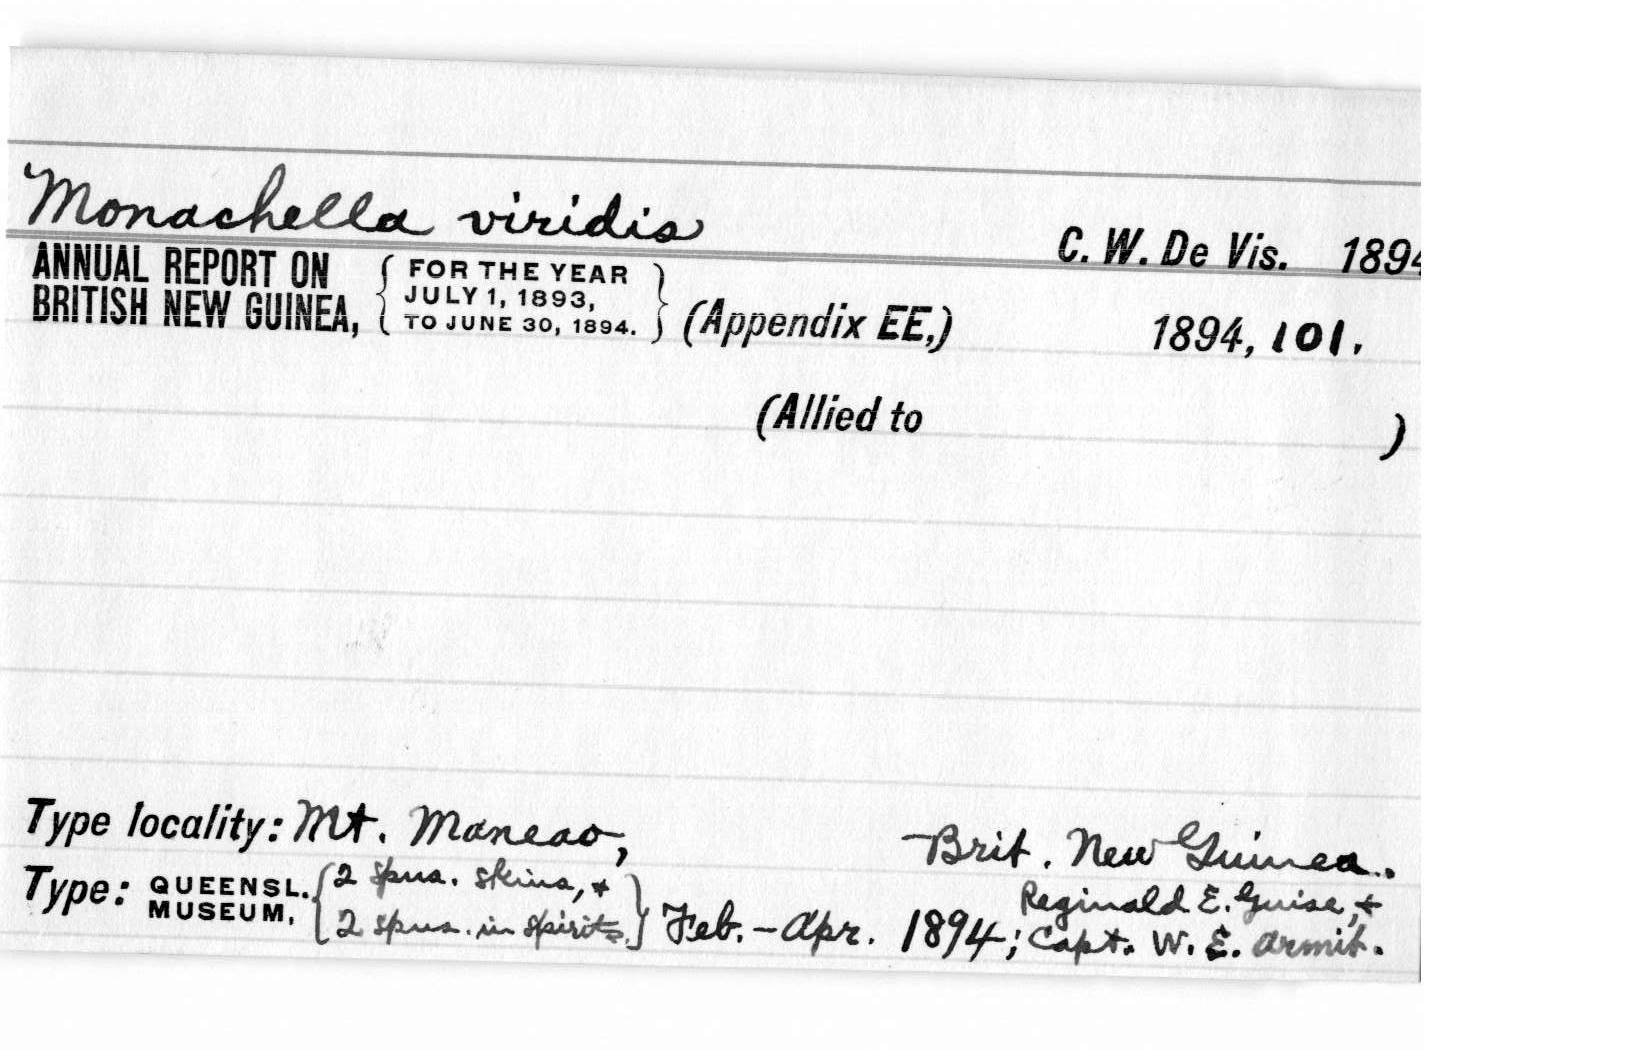 Monachella viridis
C. W. De Vis. 1894
ANNUAL REPORT ON BRITISH NEW GUINEA, { FOR THE YEAR JULY 1, 1893, TO JUNE 30, 1894. } (Appendix EE,) 1894, 101.
(Allied to )
Type locality: Mt. Maneao, Brit. New Guinea.
Type: QUEENSL. MUSEUM, { 2 spns. skins, + 2 spns. in spirits } Feb. - Apr. 1894; Reginald E. Guise, + Capt. W. E. Armit.